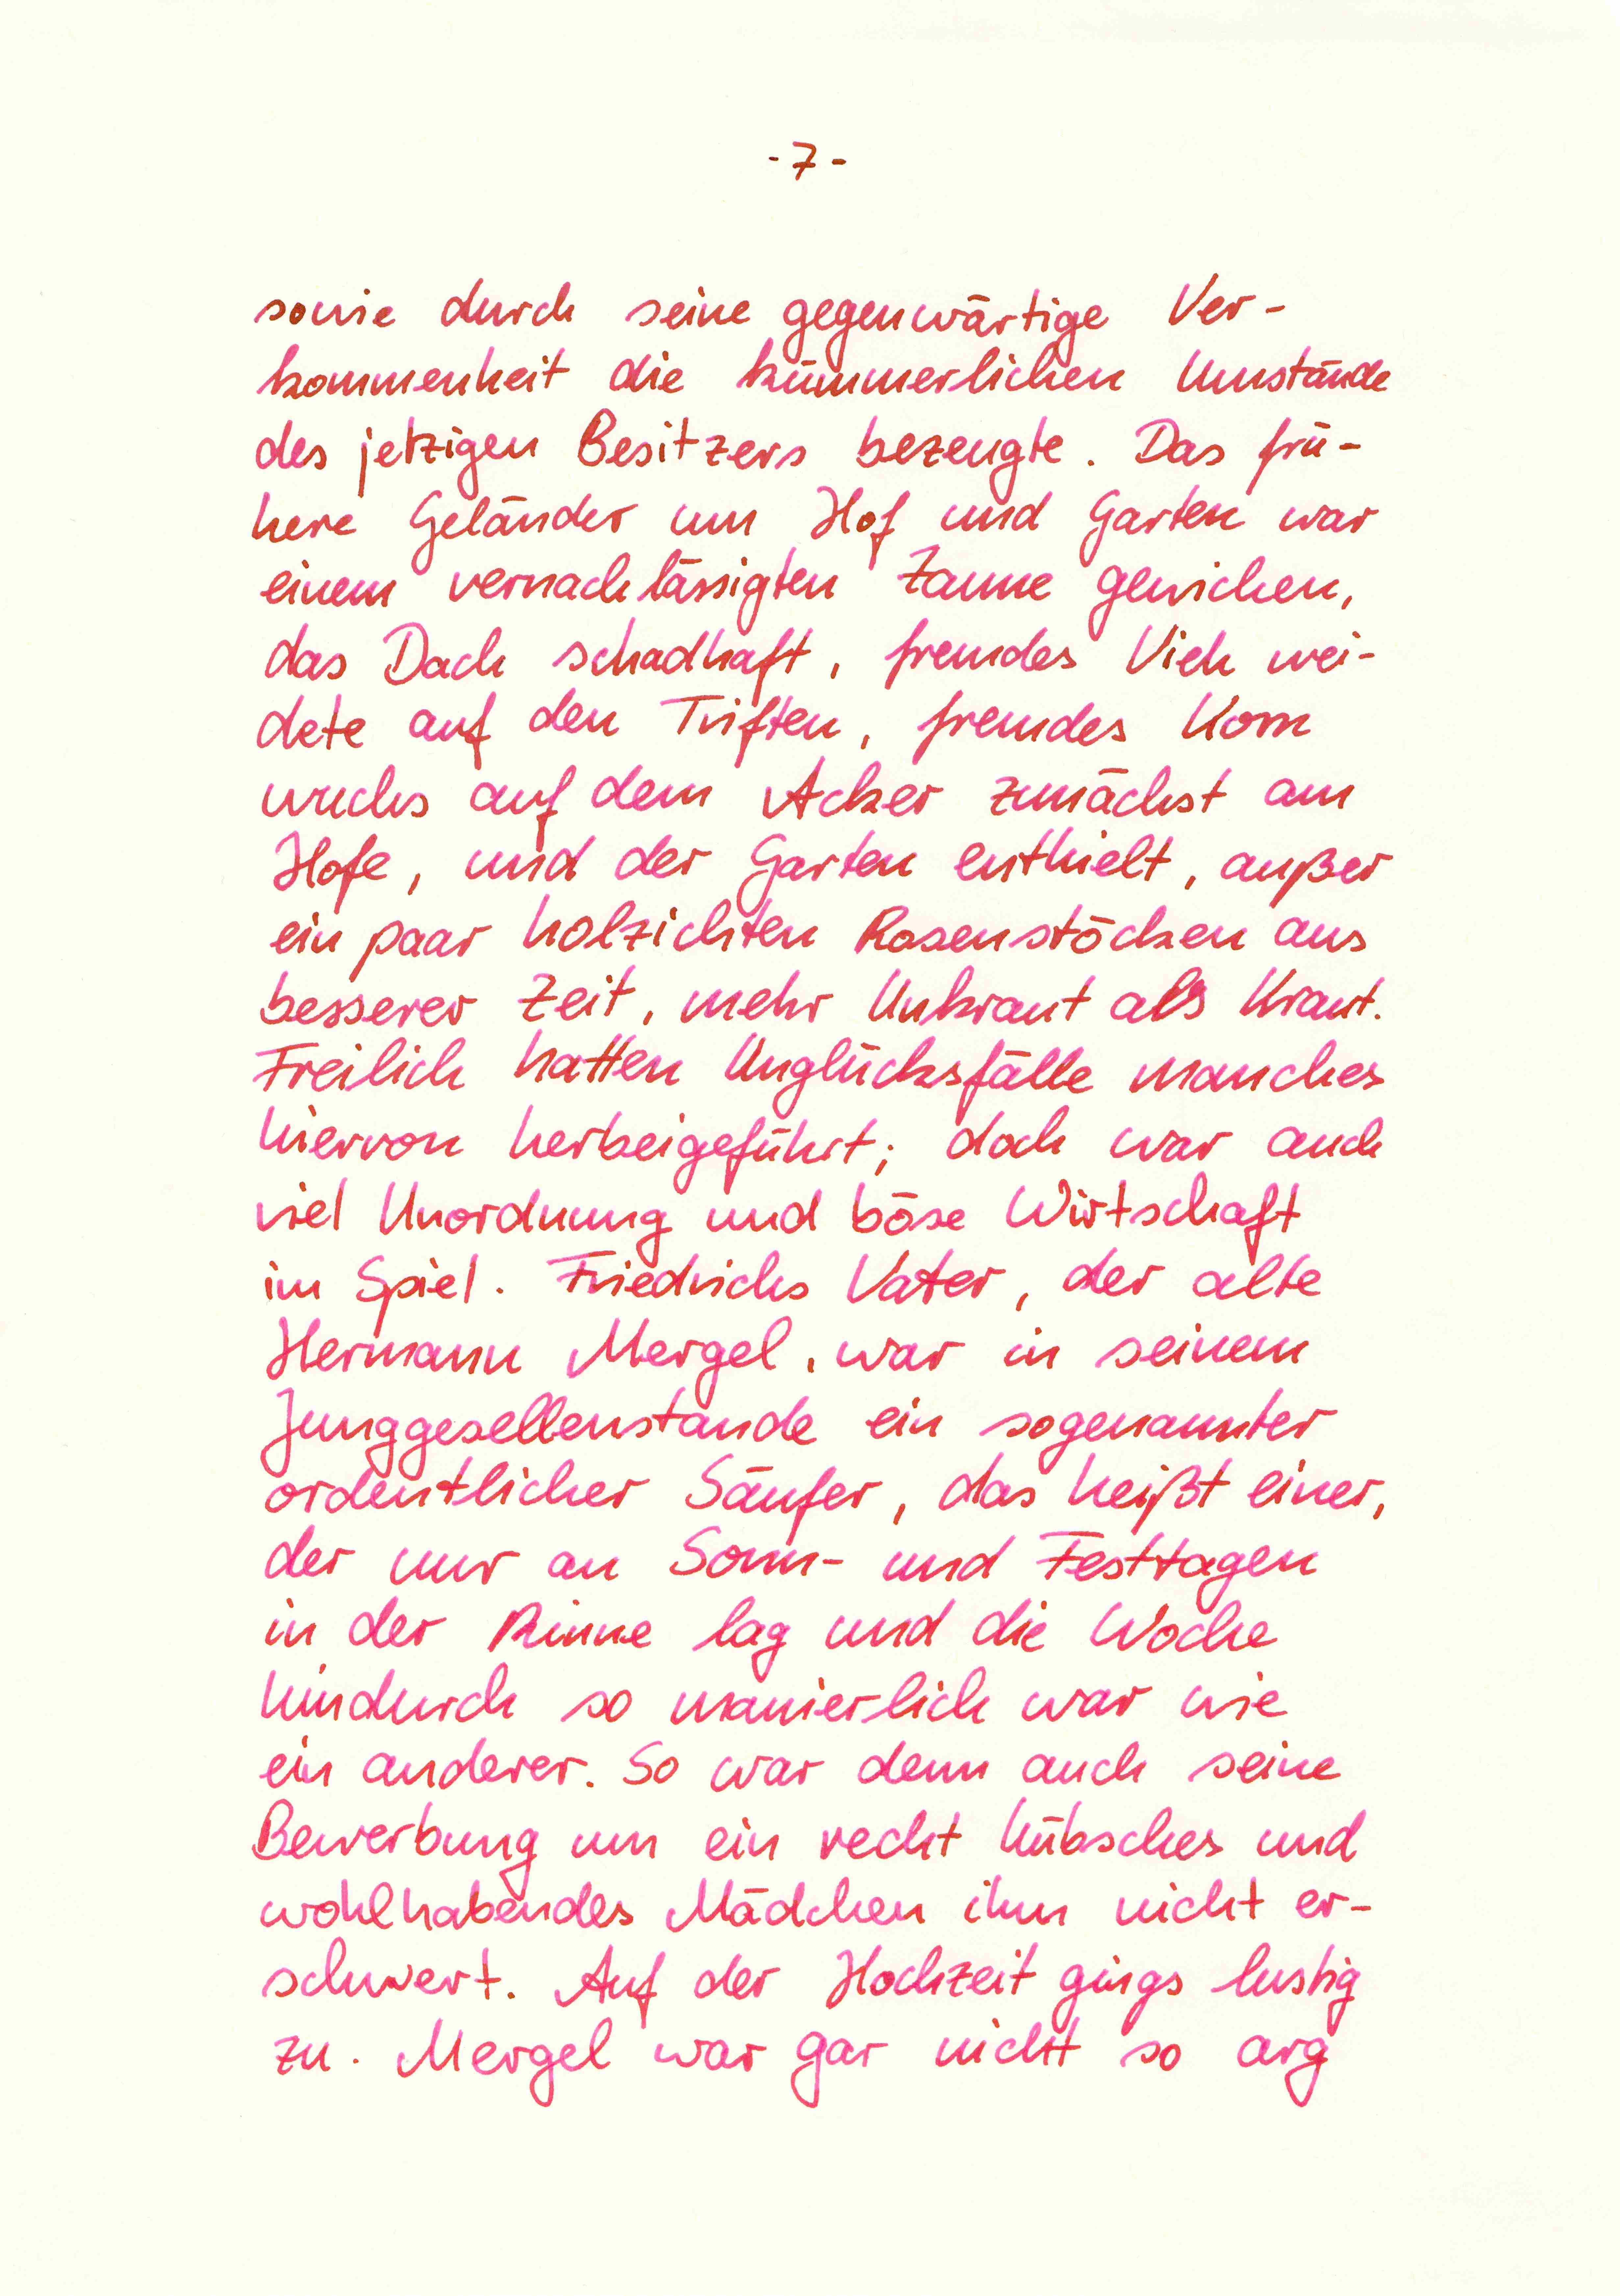 -7-
sowie durch seine gegenwärtige Ver-
kommenheit die kümmerlichen Umstände
des jetzigen Besitzers bezeugte. Das frü-
here Geländer um Hof und Garten war
einem vernachlässigten Zaune gewichen,
das Dach schadhaft, fremdes Vieh wei-
dete auf den Triften, fremdes Korn
wuchs auf dem Acker zunächst am
Hofe, und der Garten enthielt, außer
ein paar holzichten Rosenstöcken aus
besserer Zeit, mehr Unkraut als Kraut.
Freilich hatten Unglücksfälle manches
hiervon herbeigeführt; doch war auch
viel Unordnung und böse Wirtschaft
im Spiel. Friedrichs Vater, der alte
Hermann Mergel, war in seinem
Junggesellenstande ein sogenannter
ordentlicher Säufer, das heißt einer,
der nur an Sonn- und Festtagen
in der Rinne lag und die Woche
hindurch so manierlich war wie
ein anderer. So war denn auch seine
Bewerbung um ein recht hübsches und
wohlhabendes Mädchen ihm nicht er-
schwert. Auf der Hochzeit gings lustig
zu. Mergel war gar nicht so arg